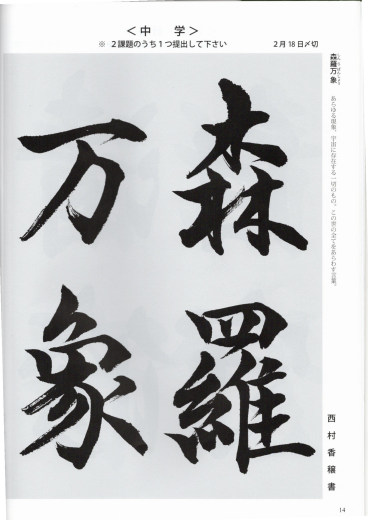 ＜中　学＞
※ ２課題のうち１つ提出して下さい　２月18日〆切
森羅万象
しんらばんしょう
あらゆる現象。宇宙に存在する一切のもの。この世の全てをあらわす言葉。
森羅
万象
西村香穣書
14